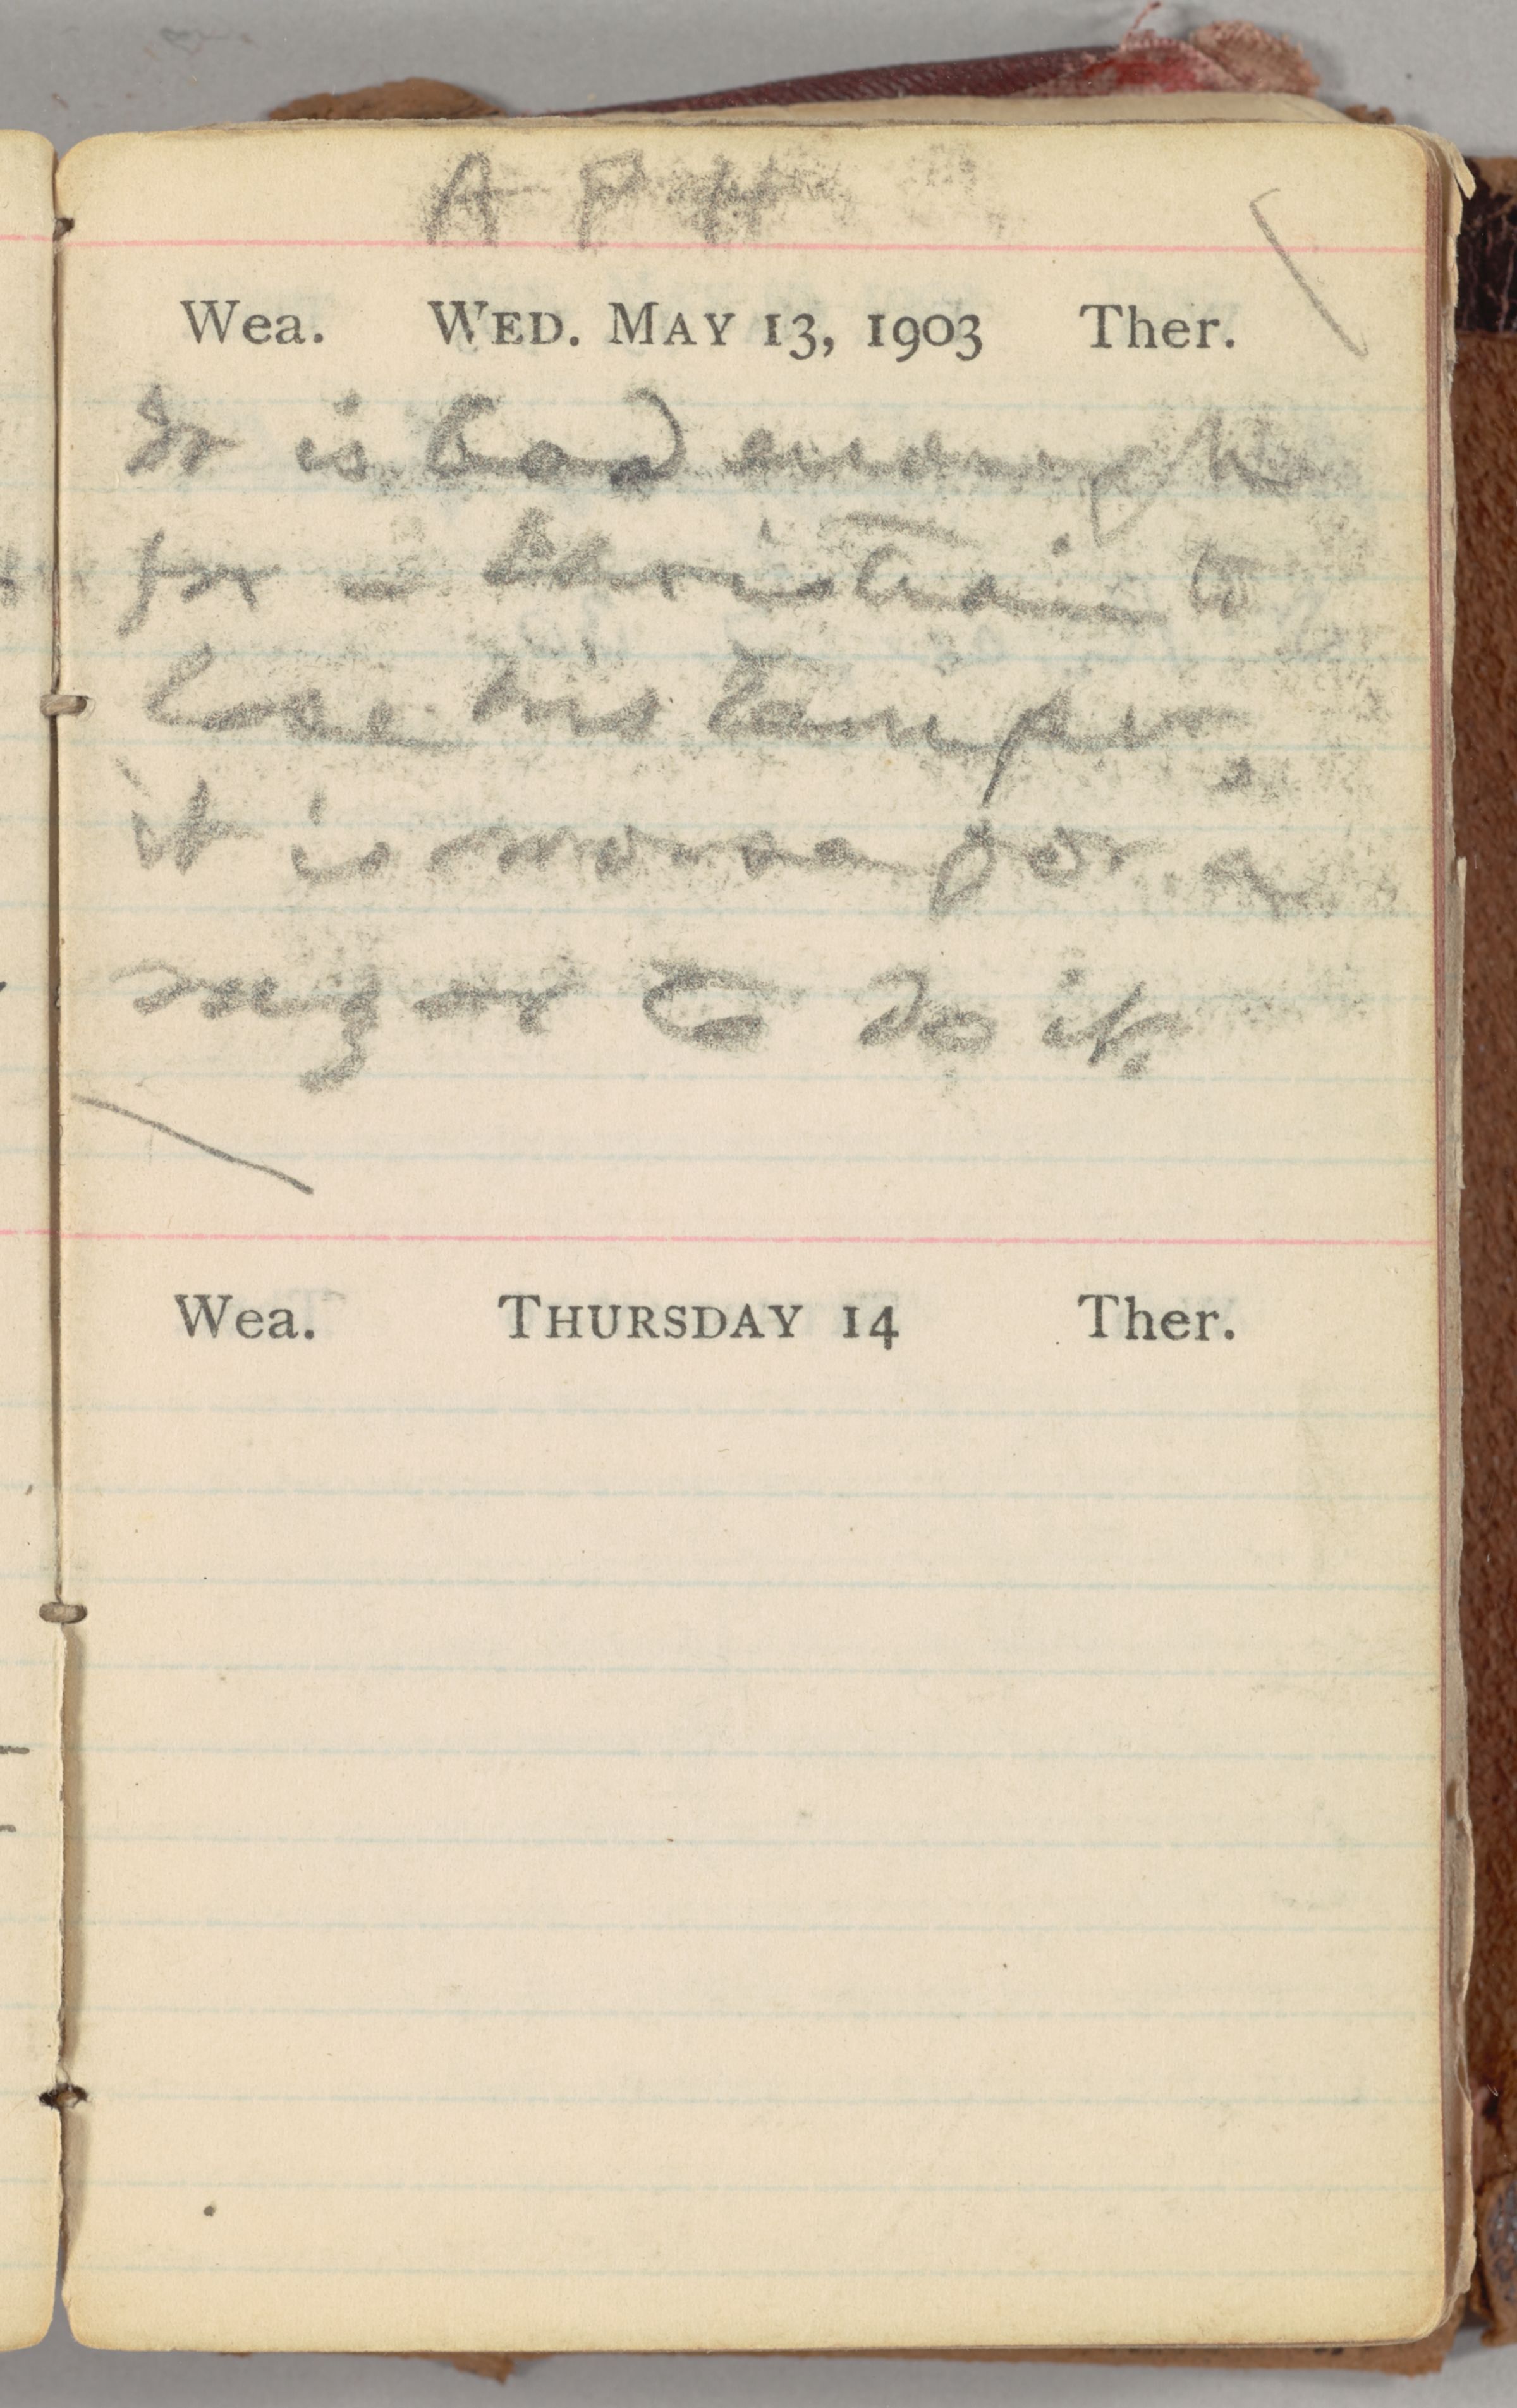 A P H
Wea. WED. MAY 13, 1903 Ther.
It is bad enough
for a Christian to
lose his temper,
it is worse for a
to do it.
Wea. THURSDAY 14 Ther.